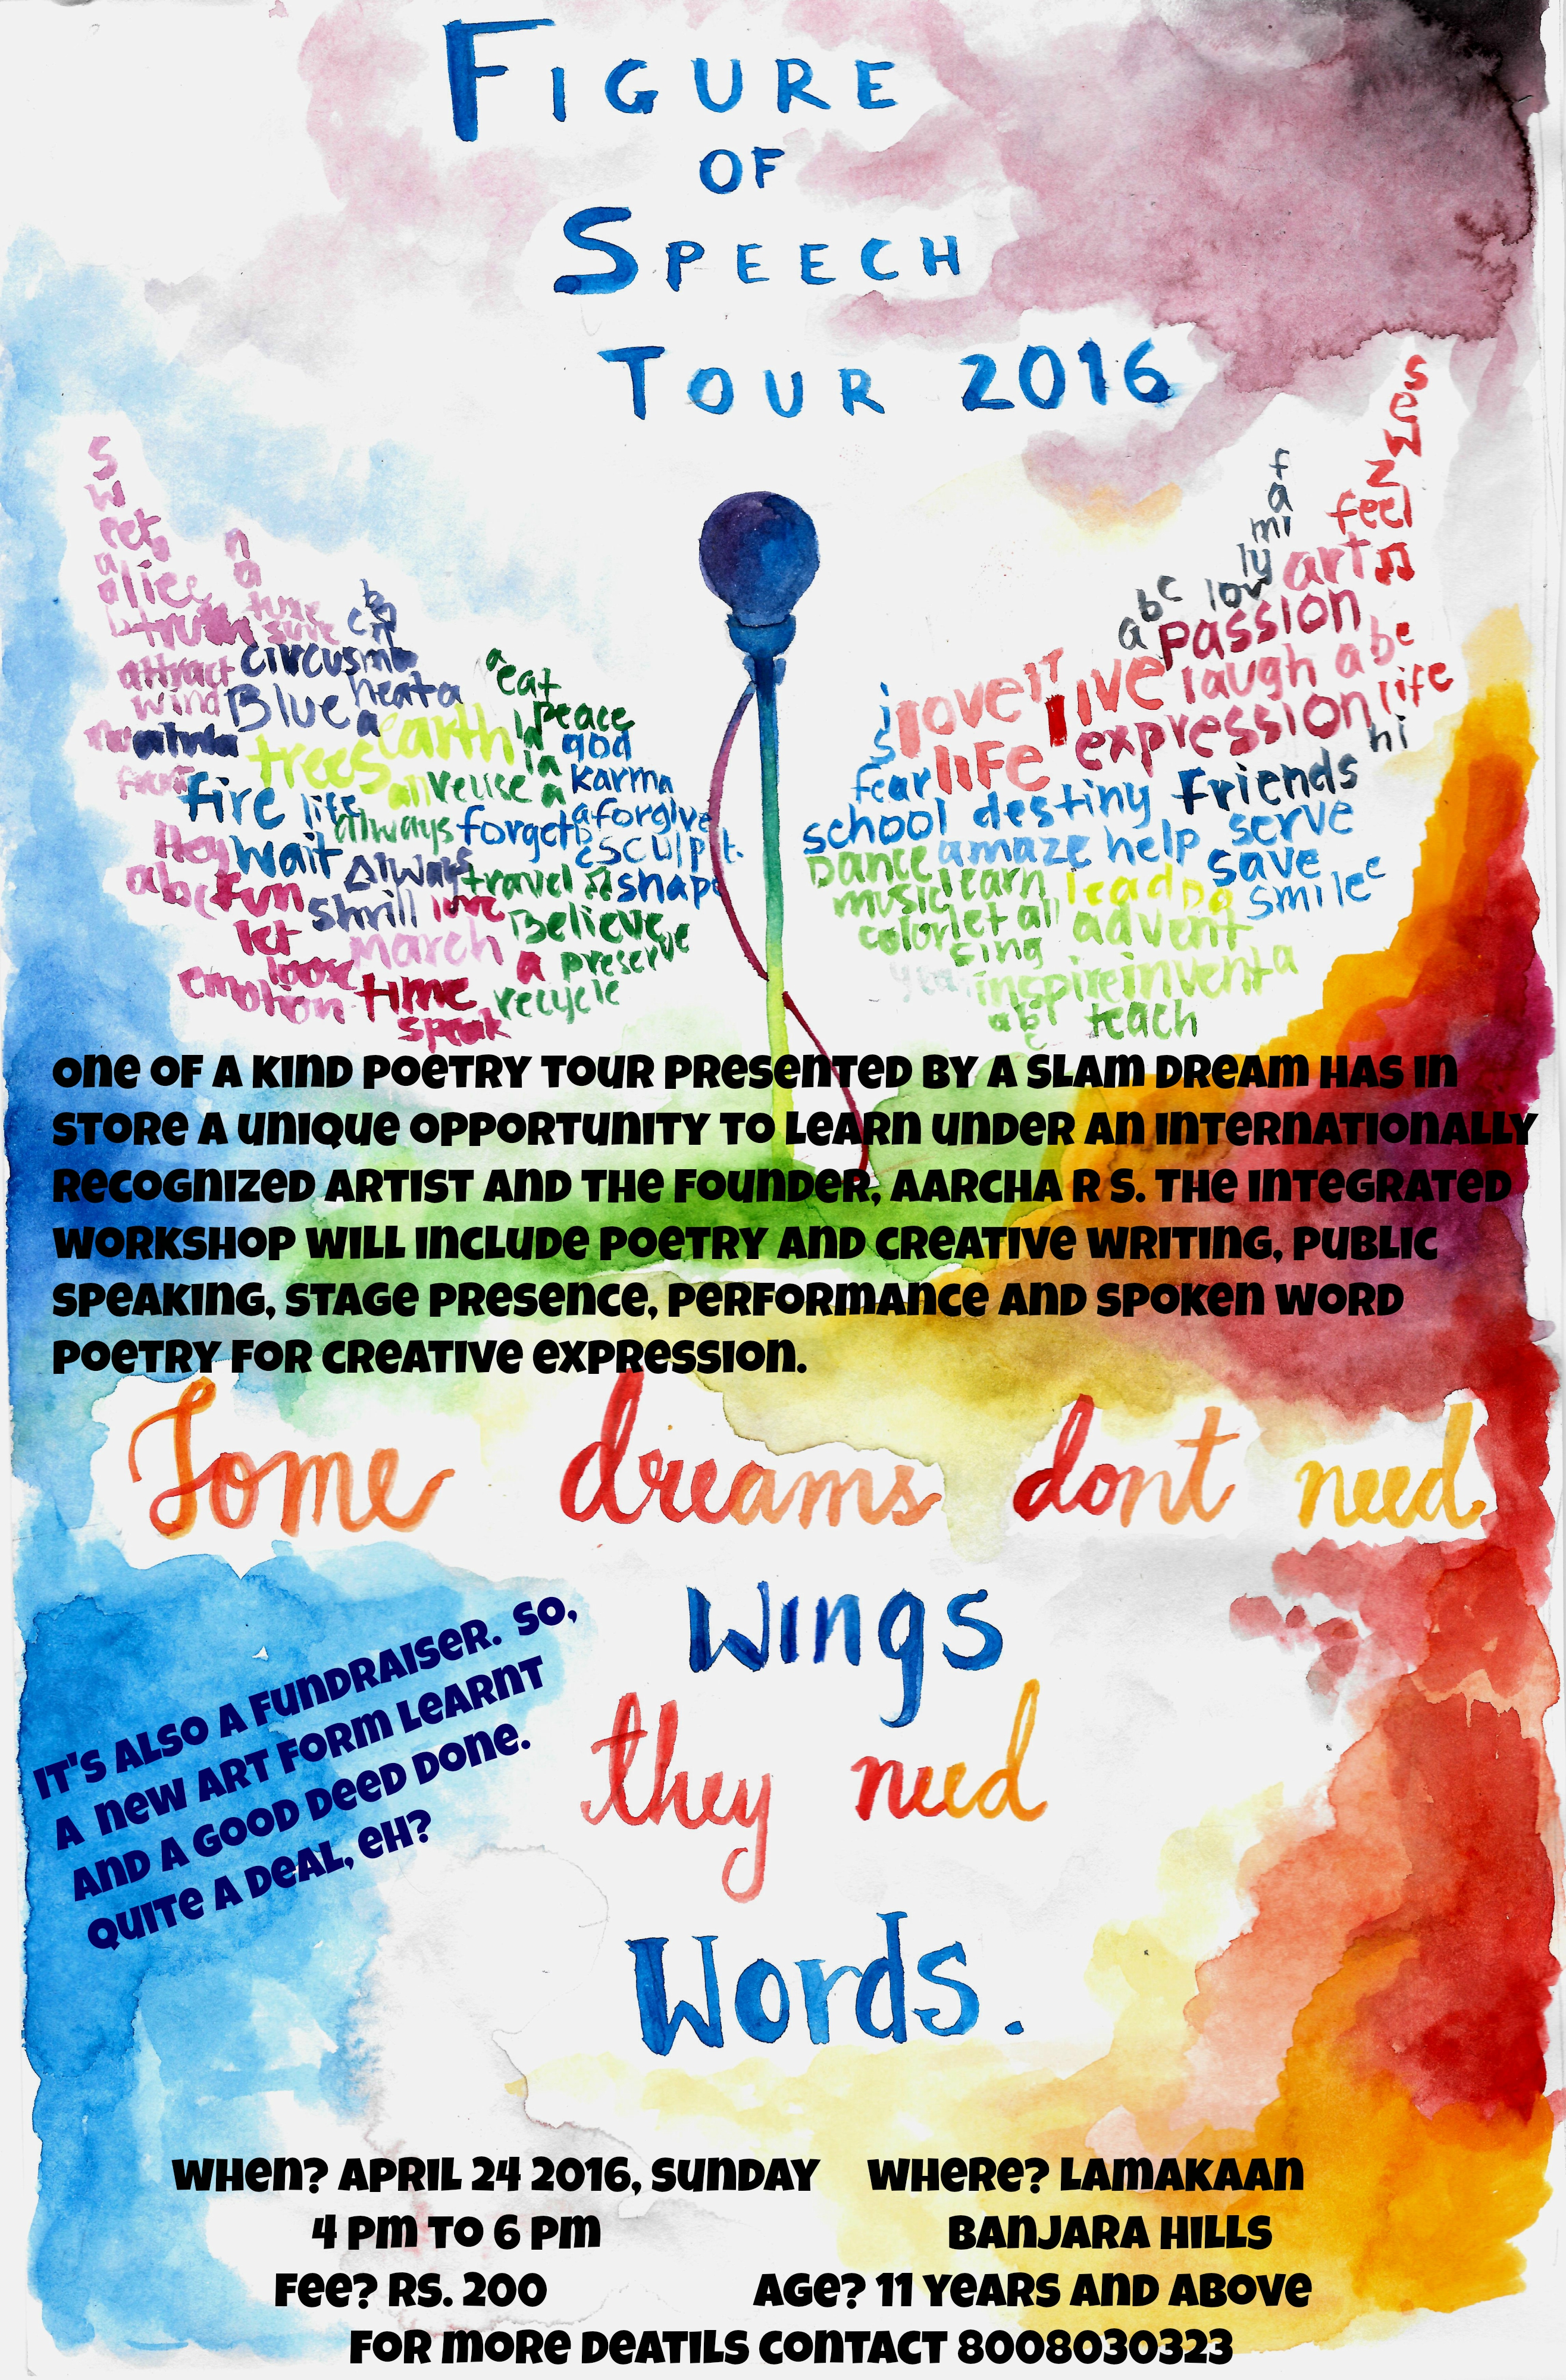 FIGURE
OF
SPEECH
TOUR 2016
sweet
a
alice
truth
attract
wind
nature
sure
circus
Blue
heata
a
earth
trees
all
reuse
a
a
eat
peace
la
god
la
karma
fire
life
always
forget
aforgive
sculpt
Hey
wait
Always
travel
♫
shape
abc
fun
shrill
love
Believe
let
March
a
preserve
loose
emotion
time
recycle
speak
family
feel
art
♫
abc
passion
love
live
laugh
abe
is
life
expression
life
hi
fear
Friends
school
destiny
serve
Dance
amaze
help
save
music
learn
lead
smile
color
let
all
advent
sing
inspire
invent
a
abc
teach
ONE OF A KIND POETRY TOUR PRESENTED BY A SLAM DREAM HAS IN
STORE A UNIQUE OPPORTUNITY TO LEARN UNDER AN INTERNATIONALLY
RECOGNIZED ARTIST AND THE FOUNDER, AARCHA R S. THE INTEGRATED
WORKSHOP WILL INCLUDE POETRY AND CREATIVE WRITING, PUBLIC
SPEAKING, STAGE PRESENCE, PERFORMANCE AND SPOKEN WORD
POETRY FOR CREATIVE EXPRESSION.
Some dreams dont need
Wings
they need
Words.
IT'S ALSO A FUNDRAISER. SO,
A NEW ART FORM LEARNT
AND A GOOD DEED DONE.
QUITE A DEAL, EH?
WHEN? APRIL 24 2016, SUNDAY WHERE? LAMAKAAN
4 PM TO 6 PM BANJARA HILLS
FEE? RS. 200 AGE? 11 YEARS AND ABOVE
FOR MORE DEATILS CONTACT 8008030323